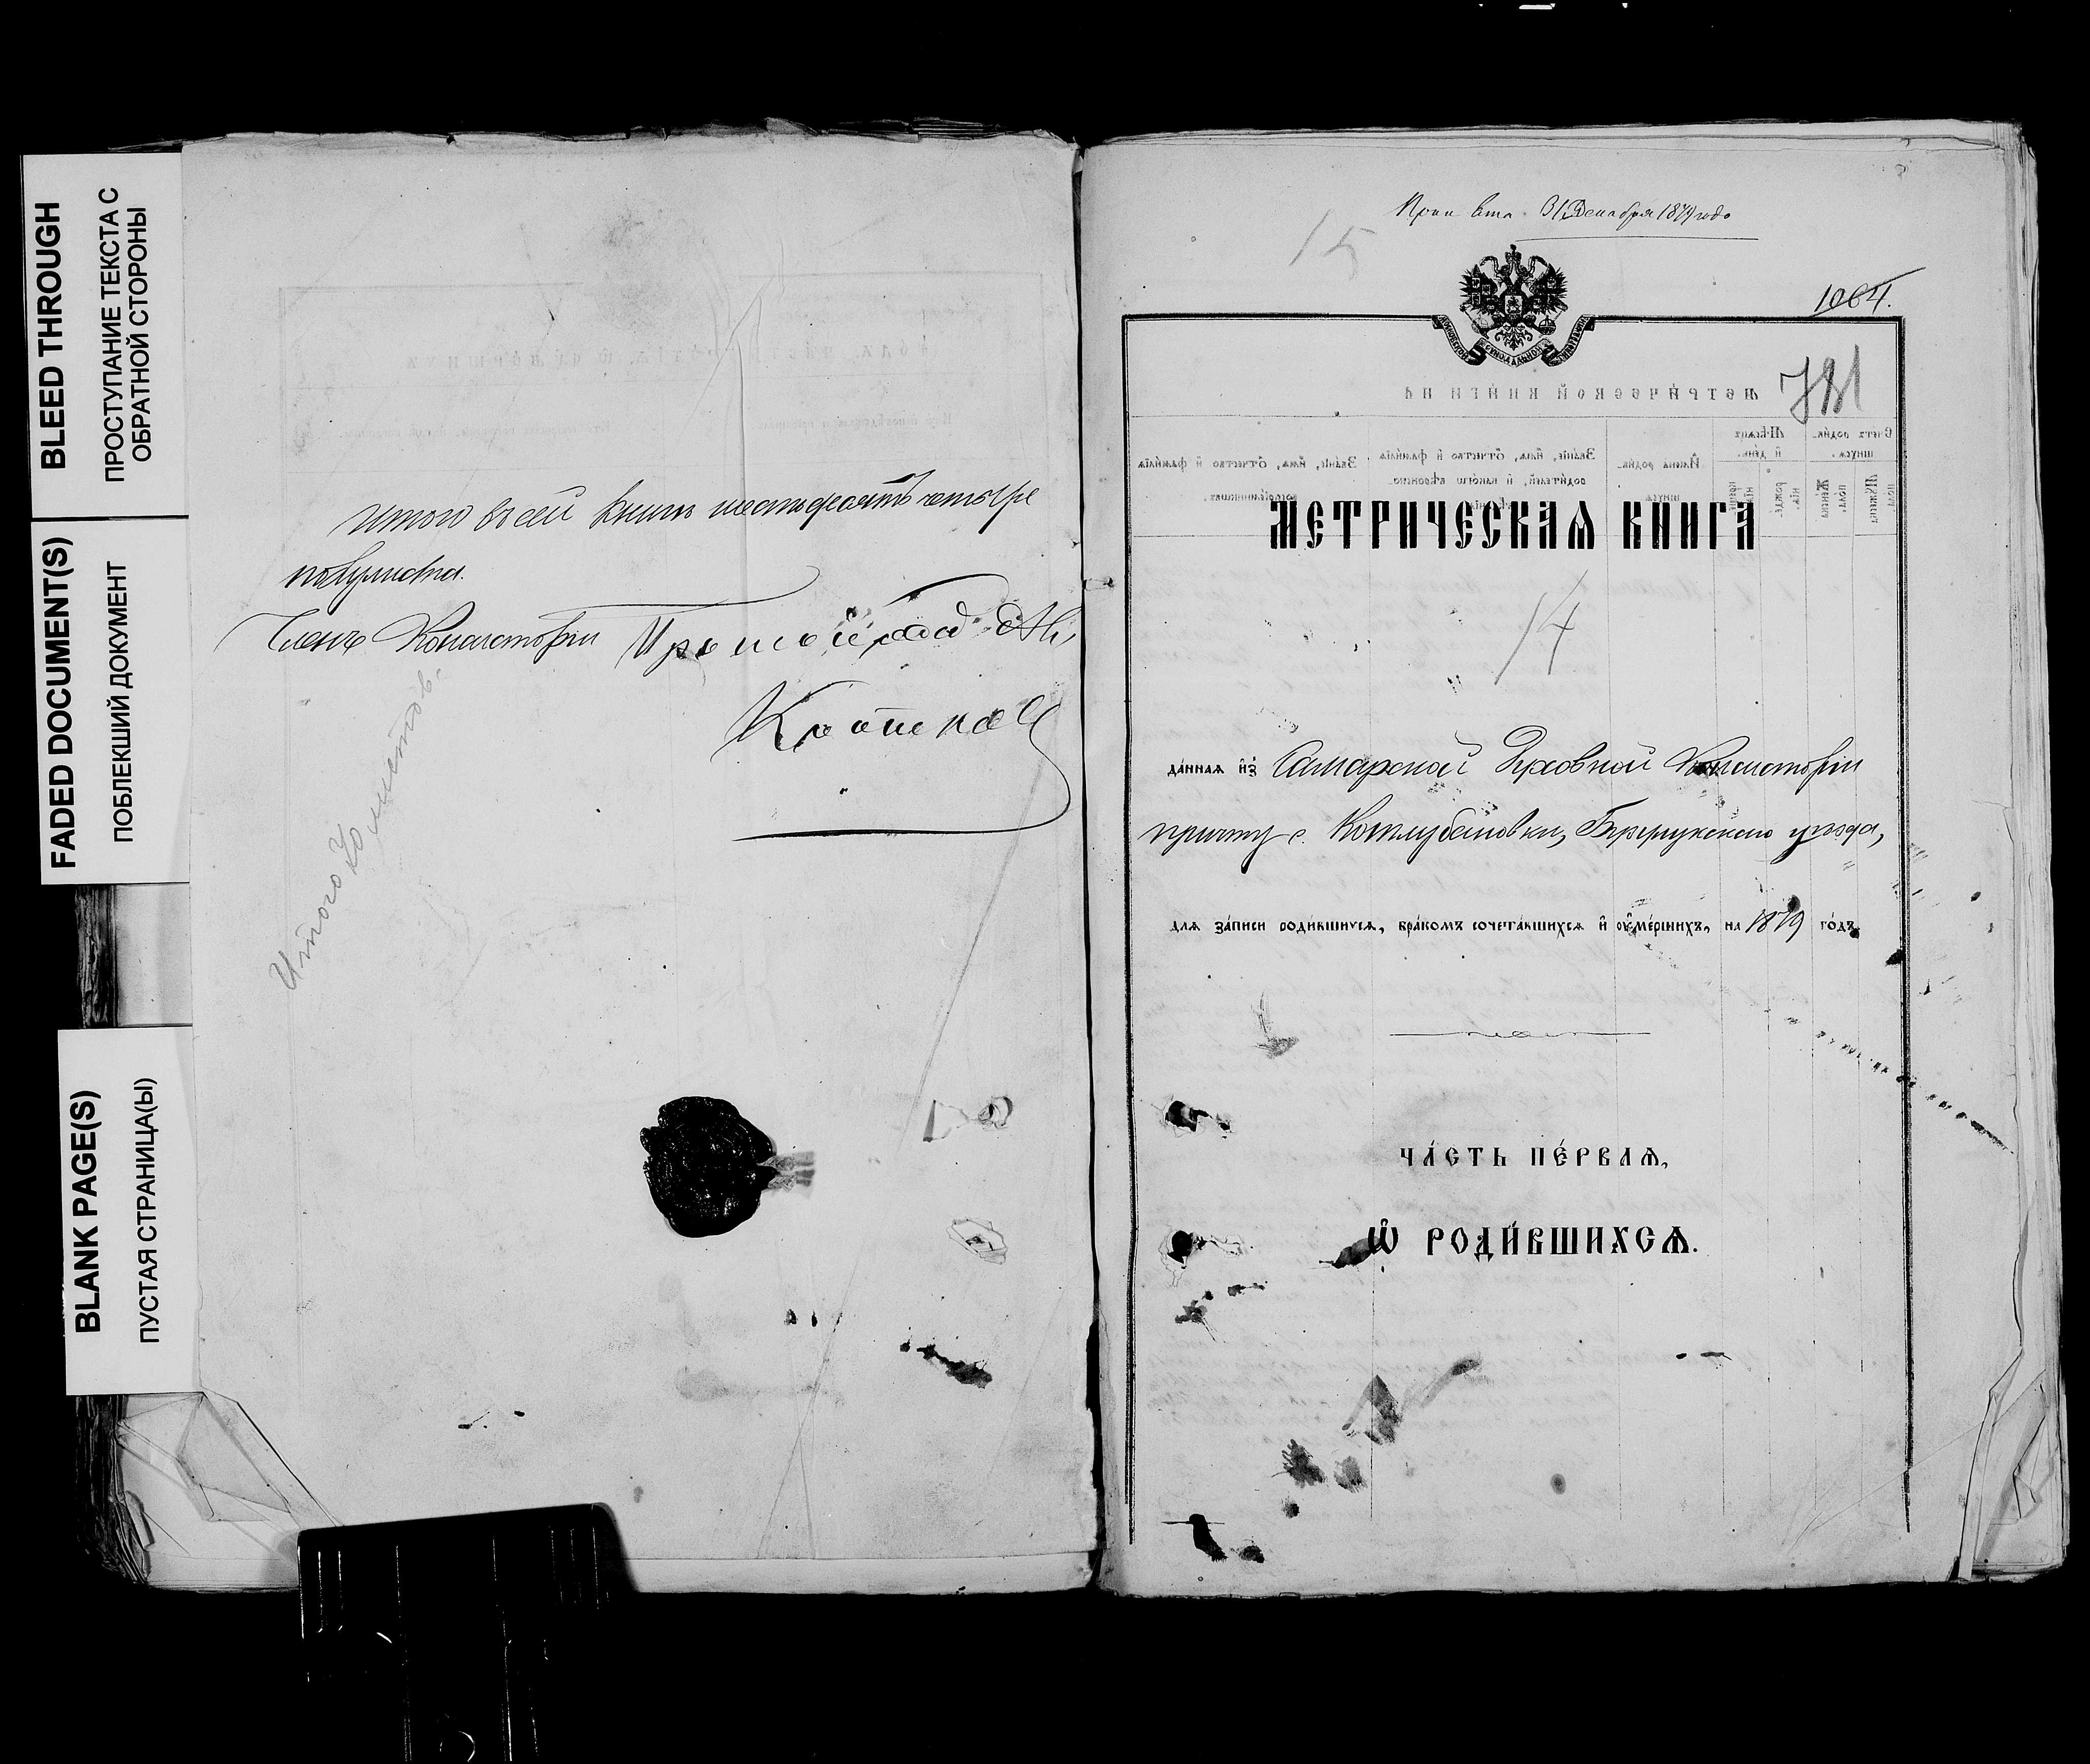 BLEED THROUGH
ПРОСТУПАНИЕ ТЕКСТА С
ОБРАТНОЙ СТОРОНЫ
FADED DOCUMENT(S)
ПОБЛЕКШИЙ ДОКУМЕНТ
BLANK PAGE(S)
ПУСТАЯ СТРАНИЦА(Ы)
Итого въ сей книгѣ шестьдесятъ четыре
полулиста.
Членъ Консисторіи Протоіерей
Итого листов.
31 Декабря 1879 года
15
1064.
781
МЕТРИЧЕСКАЯ КНИГА
14
да́ннаѧ и҆з̾ Самарской Духовной Консисторіи
причту с. Котлубановки, Бузулукскаго уѣзда,
длѧ за́писи роди́вшихсѧ, бра́комъ сочета́вшихсѧ и҆ ᲂу҆ме́ршихъ, на 1879 го́дъ.
ЧА́СТЬ ПЕ́РВАѦ,
Ѡ҆ РОДИ́ВШИХСѦ.